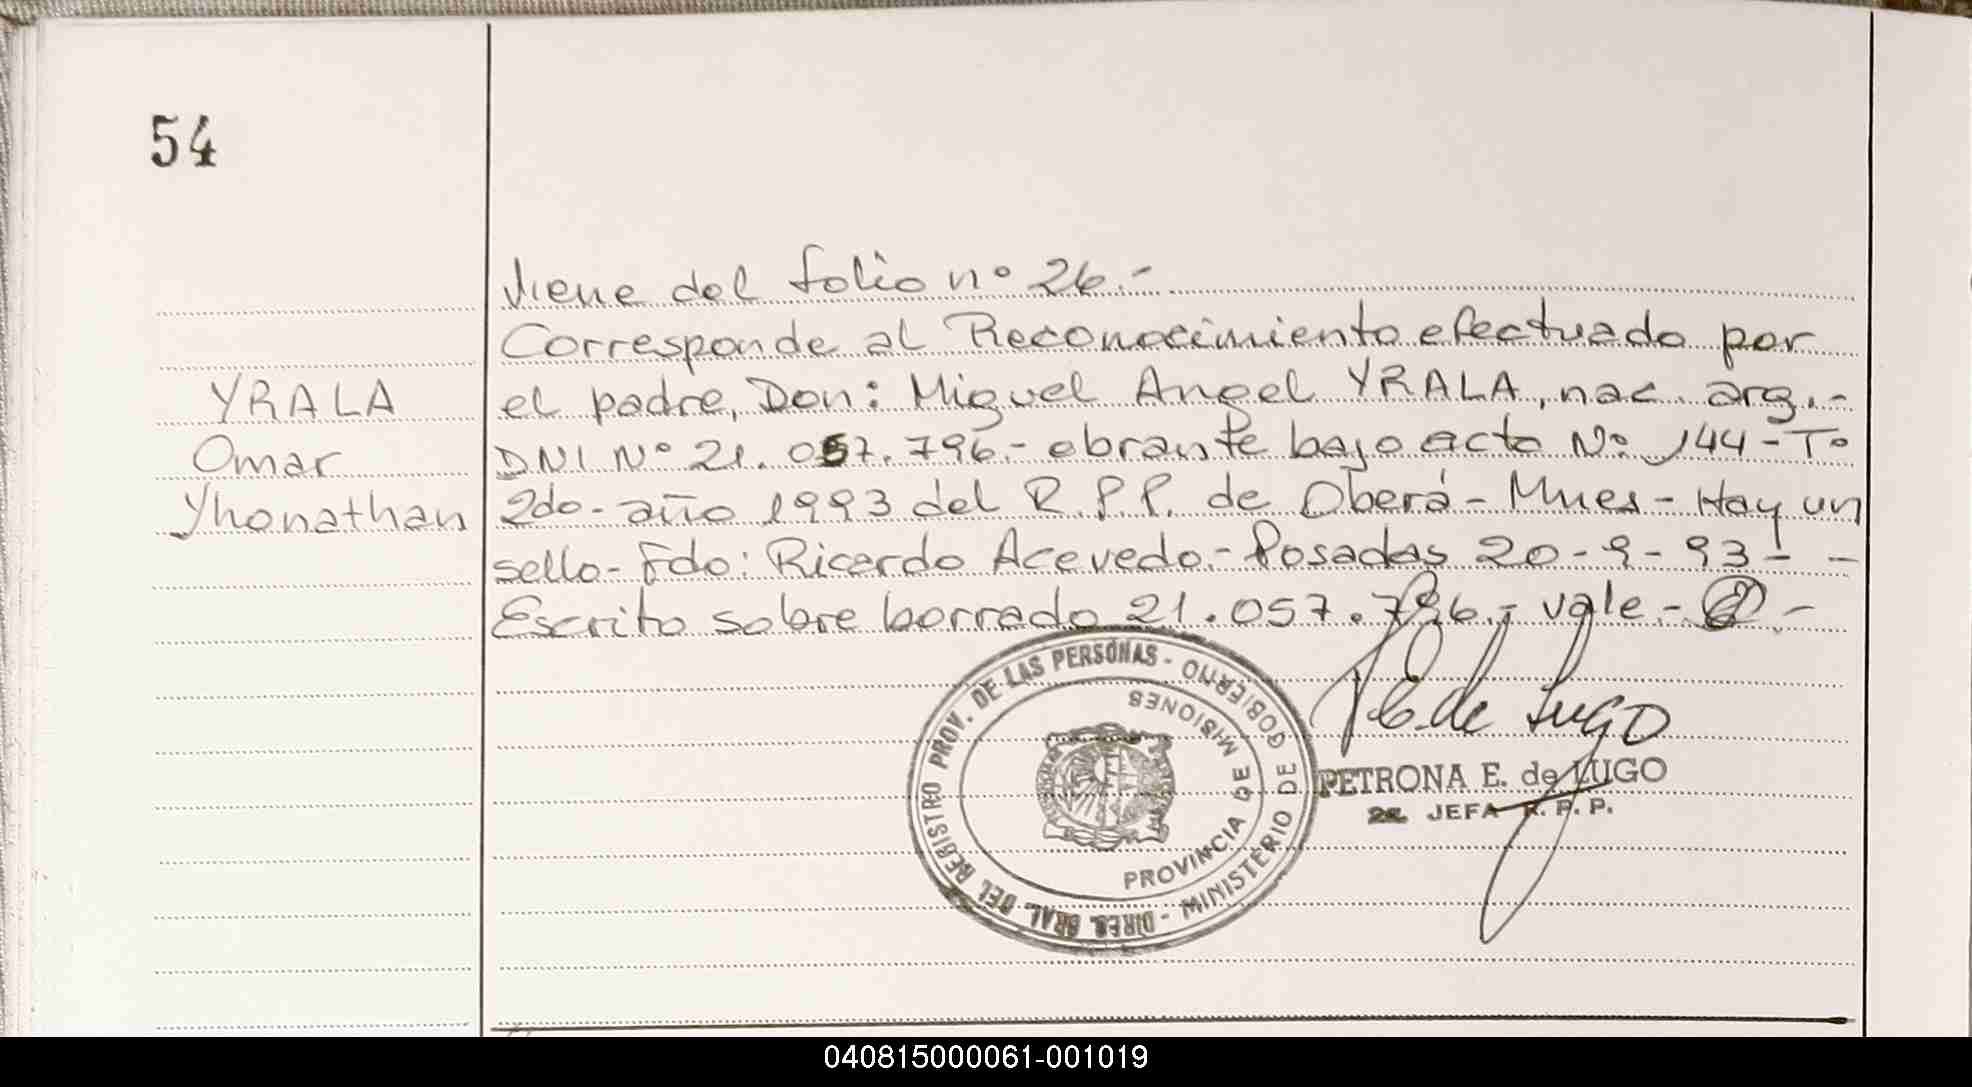 54
Viene del folio nº 26.-
Corresponde al Reconocimiento efectuado por
YRALA
el padre, Don: Miguel Angel YRALA, nac. arg.-
Omar
DNI Nº 21.057.796.- obrante bajo acta Nº 144-Tº
Yhonathan
2do- año 1993 del R.P.P. de Oberá- Mnes- Hay un
sello- Fdo: Ricardo Acevedo.- Posadas 20-9-93- -
Escrito sobre borrado 21.057.796.- vale.-
DIREC. GRAL. DEL REGISTRO PROV. DE LAS PERSONAS - MINISTERIO DE GOBIERNO
PROVINCIA DE MISIONES
P E de Lugo
PETRONA E. de LUGO
JEFA R.P.P.
040815000061-001019